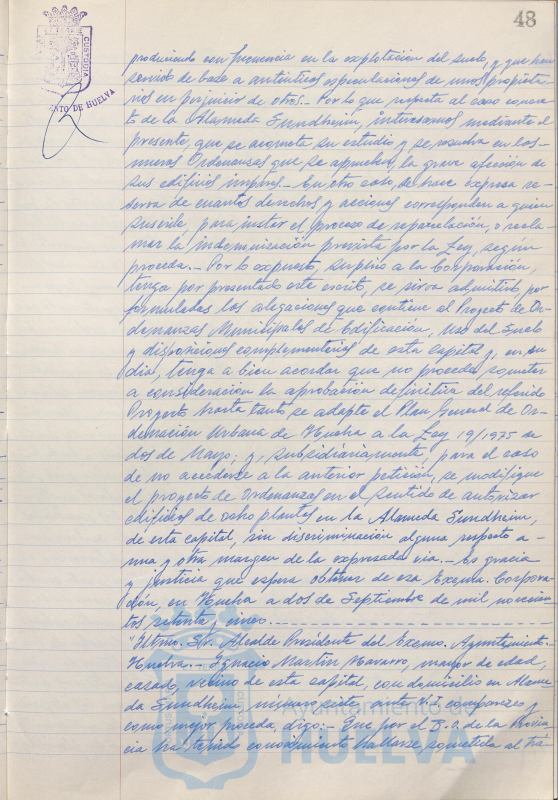 48
CUSTODIA
NTO DE HUELVA
produciendo con frecuencia en la explotación del suelo, y que han
servido de base a auténticas especulaciones de unos propieta-
rios en perjuicio de otros.- Por lo que respecta al caso concre-
to de la Alameda Sundheim, interesamos mediante el
presente, que se acometa su estudio y se resuelva en las
nuevas Ordenanzas que se aprueben, la grave afección de
sus edificios impares.- En otro caso, se hace expresa re-
serva de cuantos derechos y acciones corresponden a quien
suscribe, para instar el proceso de reparcelación, o recla-
mar la indemnización prevista por la Ley, según
proceda.- Por lo expuesto, suplico a la Corporación,
tenga por presentado este escrito, se sirva admitirlo, por
formuladas las alegaciones que contiene al Proyecto de Or-
denanzas Municipales de Edificación, Uso del Suelo
y disposiciones complementarias de esta capital y, en su
dia, tenga a bien acordar que no procede someter
a consideración la aprobación definitiva del referido
Proyecto hasta tanto se adapte el Plan General de Or-
denación Urbana de Huelva a la Ley 19/1975 de
dos de Mayo; y, subsidiariamente, para el caso
de no accederse a la anterior petición, se modifique
el proyecto de Ordenanzas en el sentido de autorizar
edificios de ocho plantas en la Alameda Sundheim,
de esta capital, sin discriminación alguna respecto a
una y otra margen de la expresada via.- Es gracia
y justicia que espera obtener de esa Excma. Corpora-
ción, en Huelva a dos de Septiembre de mil novecien-
tos setenta y cinco.
"Iltmo. Sr. Alcalde Presidente del Excmo. Ayuntamiento.-
Huelva.- Ignacio Martín Navarro, mayor de edad,
casado, vecino de esta capital, con domicilio en Alame-
da Sundheim, número siete, ante V.I. comparezco y
como mejor proceda, digo:- Que por el B.O. de la Provin
cia ha tenido conocimiento hallarse sometida al trá-
Ayuntamiento
HUELVA